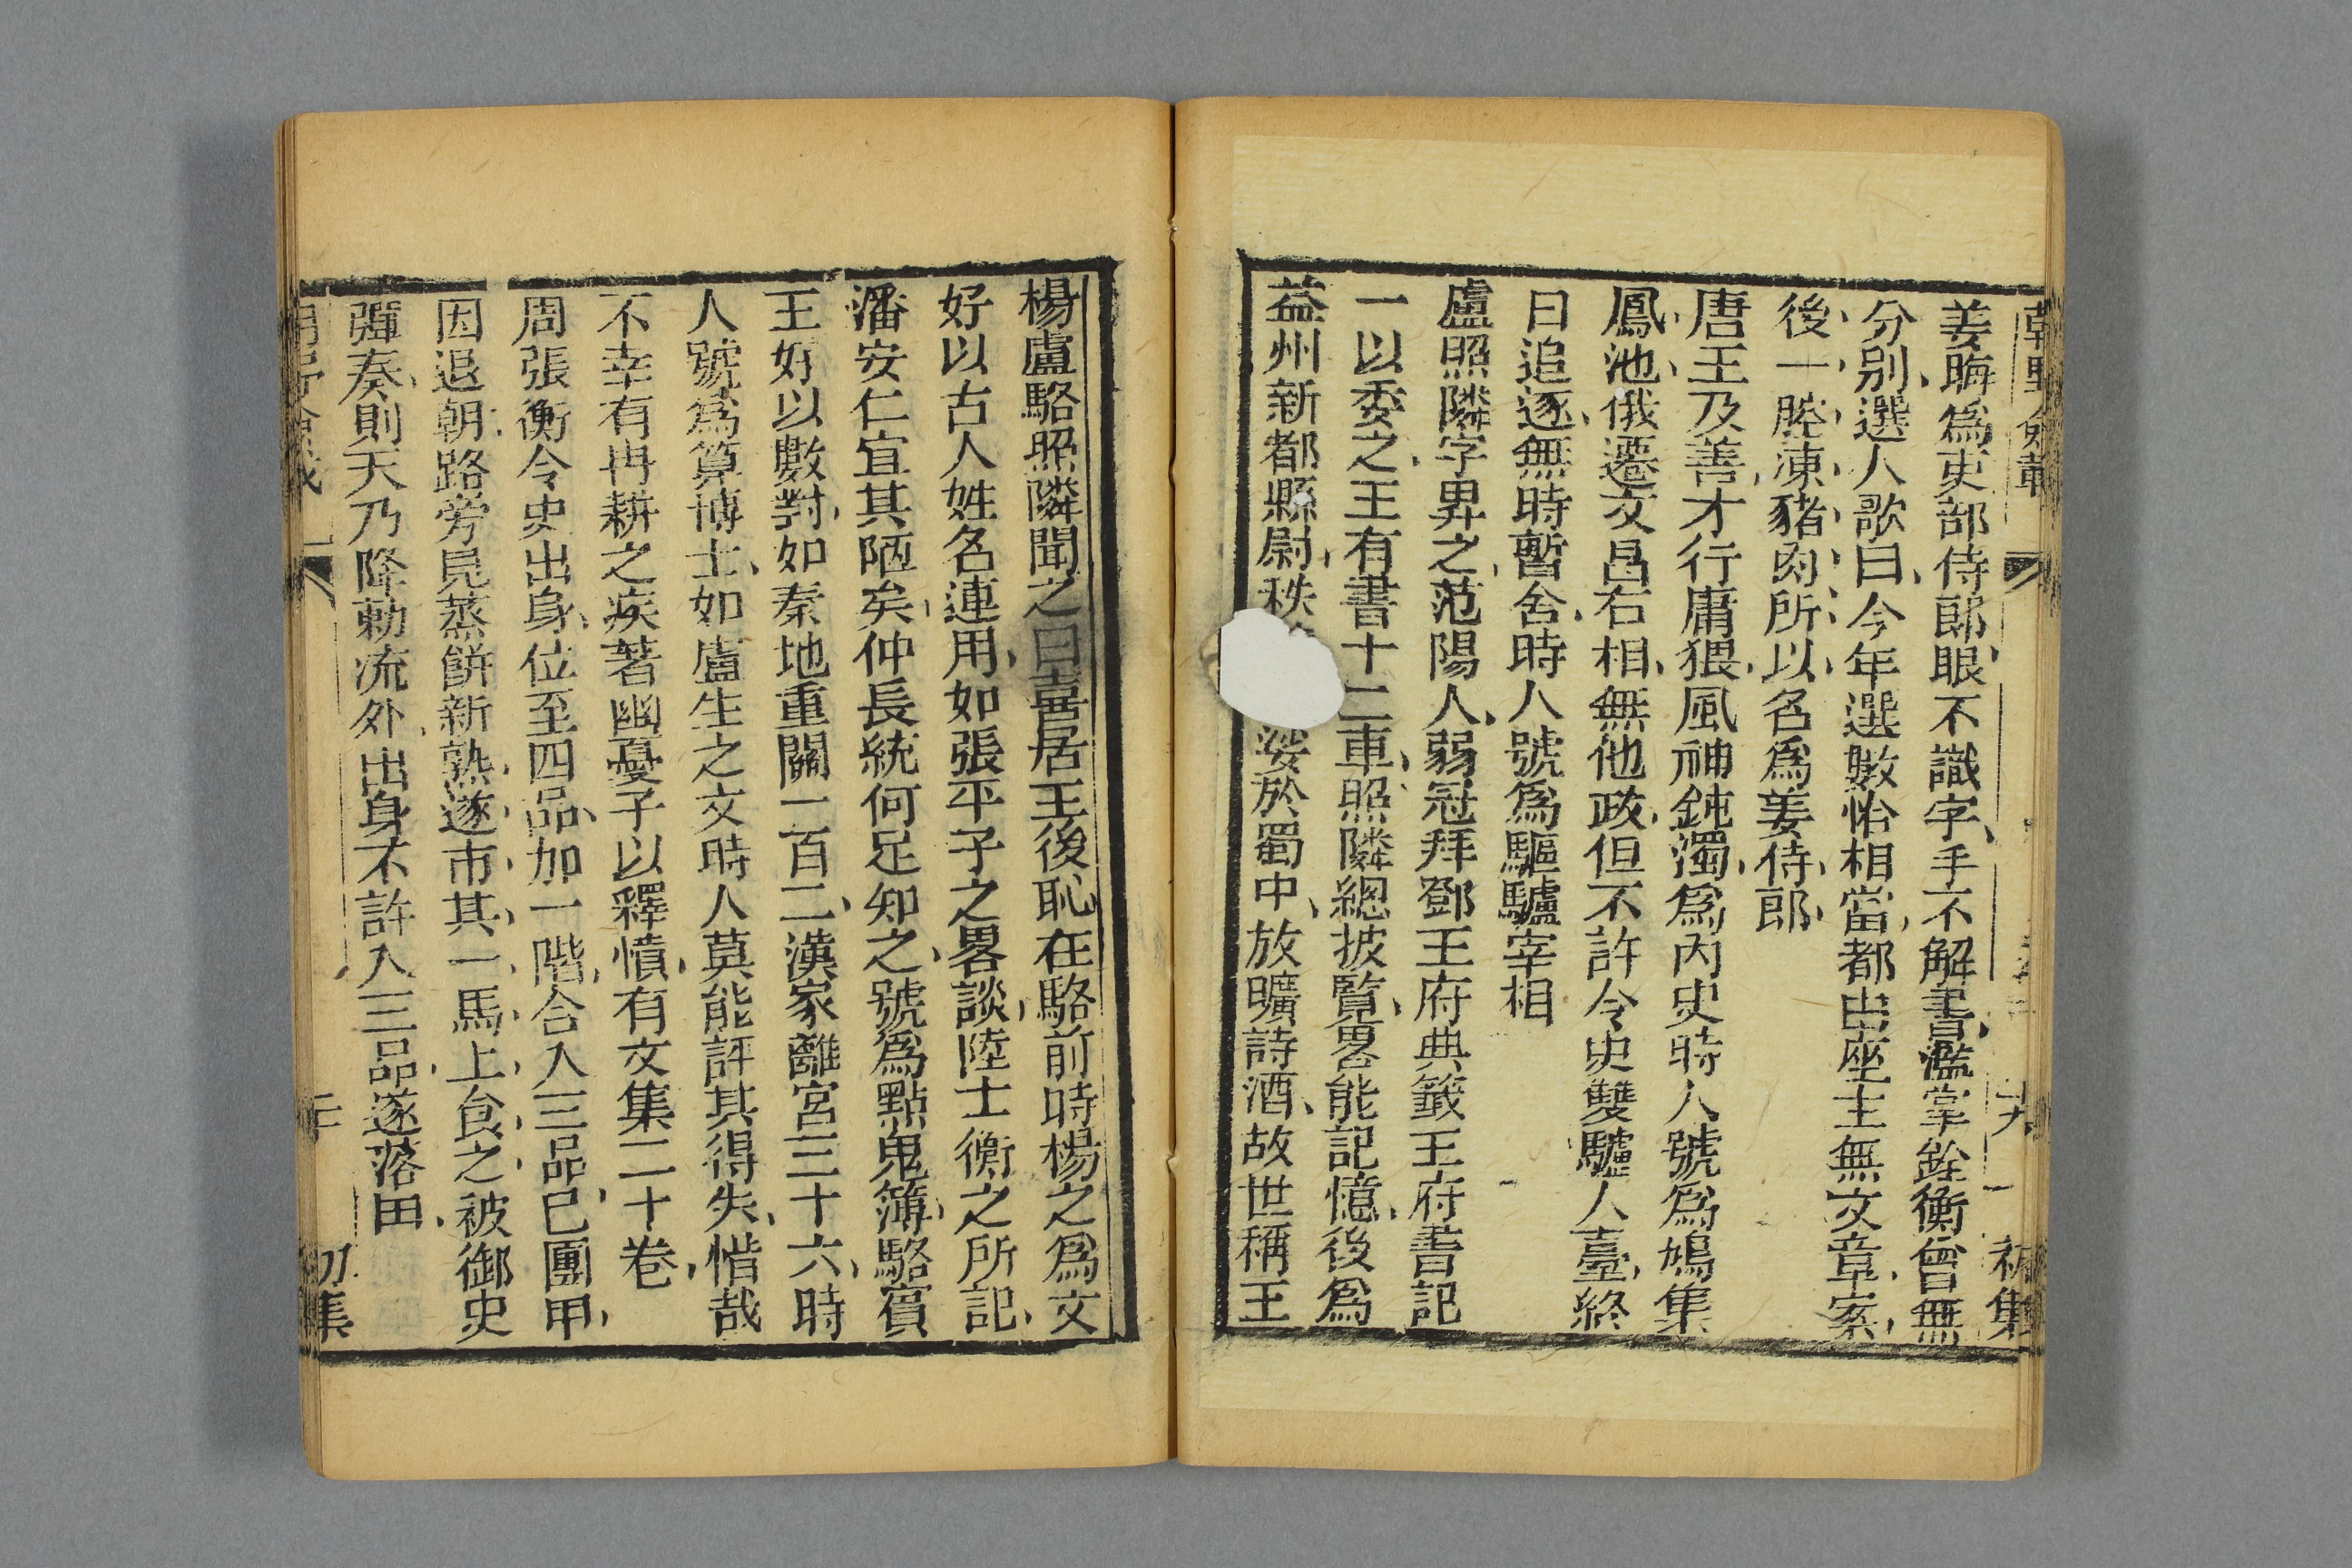 姜晦爲吏部侍郎眼不識字手不解書濫掌銓衡曾無
分别選人歌曰今年選數恰相當都由座主無文章案
後一腔凍豬肉所以名爲姜侍郎
唐王及善才行庸猥風神鈍濁爲内史時人號爲鳩集
鳳池俄遷文昌右相無他政但不許令史雙驢人臺終
日追逐無時暫舍時人號爲驅驢宰相
盧照隣字昇之范陽人弱冠拜鄧王府典籖王府書記
一以委之王有書十二車照隣總披覧畧能記憶後爲
益州新都縣尉秩 娑於蜀中放曠詩酒故世稱王
楊盧駱照隣聞之曰喜居王後恥在駱前時楊之爲文
好以古人姓名連用如張平子之畧談陸士衡之所記
潘安仁宜其陋矣仲長統何足知之號爲點鬼簿駱賓
王好以數對如秦地重關一百二漢家離宮三十六時
人號爲算博士如盧生之文時人莫能評其得失惜哉
不幸有冉耕之疾著幽憂子以釋憤有文集二十卷
周張衡令史出身位至四品加一階合入三品已團甲
因退朝路旁見蒸餅新熟遂市其一馬上食之被御史
彈奏則天乃降勅流外出身不許入三品遂落甲
二十
初集